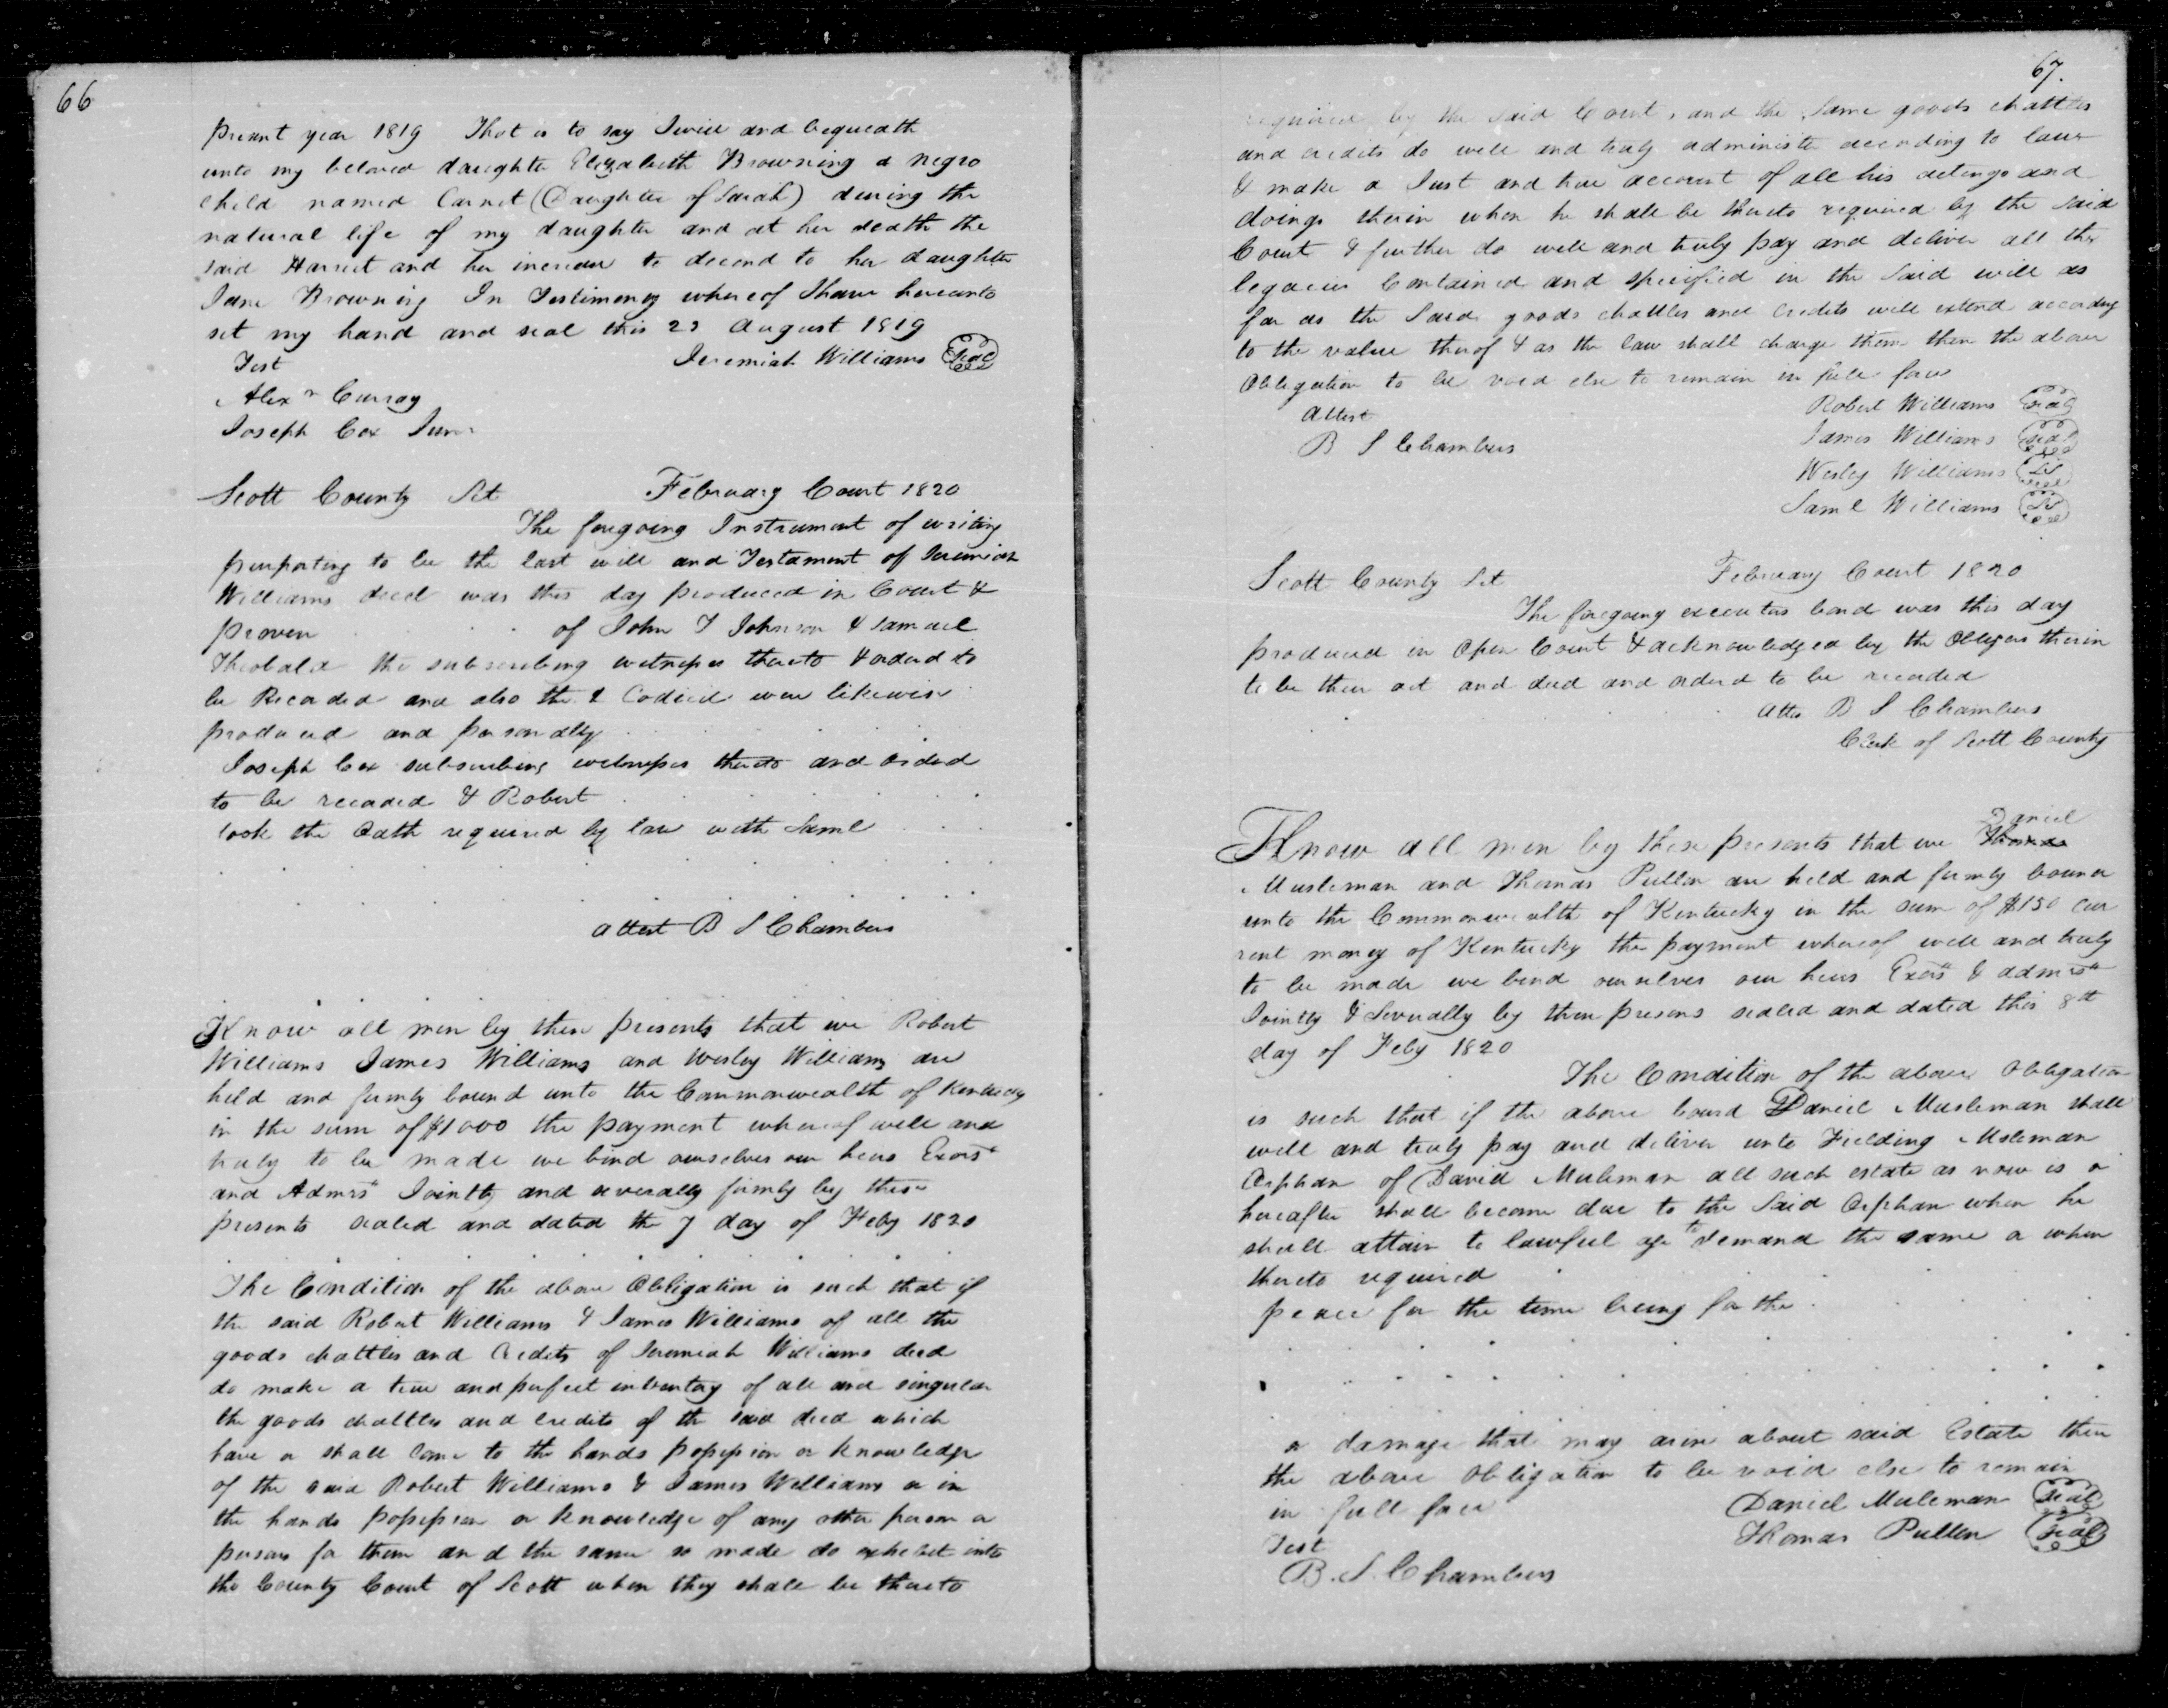 66
present year 1819 That is to say I will and bequeath
unto my beloved daughter Elizabeth Browning a negro
child named (Daughter of Sarah) during the
natural life of my daughter and at her death the
said Harriet and her increase to decend to her daughter
Jane Browning In Testimony whereof I have hereunto
set my hand and seal this 23 August 1819
Test Jeremiah Williams seal
Alexr Curray
Joseph Cox Junr
Scott County Sct February Court 1820
The foregoing Instrument of writing
purporting to be the last will and Testament of Jeremiah
Williams decd was this day produced in Court &
proven . . . of John T Johnson & Samuel
Theobald the subscribing witnesses thereto & orderd to
be Recorded and also the 2 Codicil were likewise
produced and personally . . . .
Joseph Cox subscribing witnesses thereto and orderd
to be recorded & Robert . . . . .
took the Oath required by law with Saml . . .
. . . . . . . .
. . . . . . . .
attest B S Chambers
Know all men by these presents that we Robert
Williams James Williams and Wesley Williams are
held and firmly bound unto the Commonwealth of Kentucky
in the sum of $1000 the payment whereof well and
truly to be made we bind ourselves our heirs Exors
and Admrs Jointly and severally firmly by these
presents sealed and dated the 7 day of Feby 1820
. . . . . . . .
The Condition of the above Obligation is such that if
the said Robert Williams & James Williams of all the
goods chattles and Credits of Jeremiah Williams decd
do make a true and perfect inventory of all and singular
the goods chattles and credits of the said decd which
have or shall come to the hands possession or knowledge
of the said Robert Williams & James Williams or in
the hands possession or knowledge of any other person or
persons for them and the same so made do exhibit into
the County Court of Scott when they shall be thereto
67.
required by the said Court, and the same goods chattles
and credits do well and truly administer according to law
& make a Just and true account of all his actings and
doings therein when he shall be thereto required by the said
Court & further do well and truly pay and deliver all the
legacies Contained and specified in the Said will as
far as the Said goods chattles and credits will extend according
to the value therof & as the law shall charge them then the above
Obligation to be void else to remain in full force
Attest Robert Williams seal
B S Chambers James Williams seal
Wesley Williams
Saml Williams
Scott County Sct February Court 1820
The foregoing executors bond was this day
produced in Open Court & acknowledged by the Obligors therin
to be their act and deed and orderd to be recorded
Atts B S Chambers
Clerk of Scott County
Daniel
Know all men by these presents that we Thomas
Musleman and Thomas Pullen are held and firmly bound
unto the Commonwealth of Kentucky in the sum of $150 cur
rent money of Kentucky the payment whereof well and truly
to be made we bind ourselves our heirs Exors & admrs
Jointly & Severally by them presens sealed and dated this 8th
day of Feby 1820
The Condition of the above Obligation
is such that if the above bound Daniel Musleman shall
well and truly pay and deliver unto Fielding Msleman
Orphan of David Musleman all such estate as now is or
hereafter shall become due to the Said Orphan when he
shall attain to lawful age to demand the same or when
thereto required . . . .
peace for the time being for the . . . .
. . . . . . . .
. . . . . . . .
. . . . . . . .
or damage that may arise about said Estate then
the above Obligation to be void else to remain
in full force Daniel Muleman seal
Test Thomas Pullen seal
B. S. Chambers